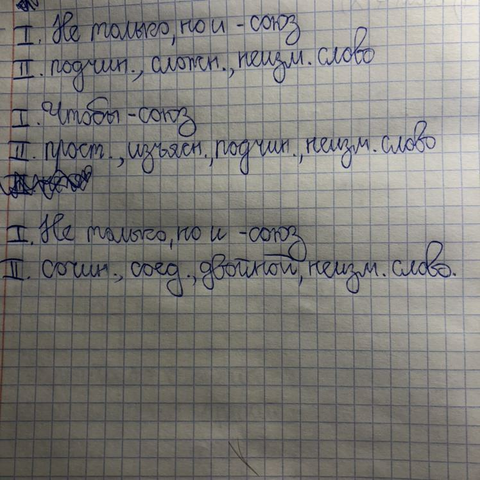 I. Не только, но и - союз
II. подчин., сложн., неизм. слово
I. Чтобы - союз
II. прост., изъясн., подчин., неизм. слово
I. Не только, но и - союз
II. сочин., соед., двойной, неизм. слово.